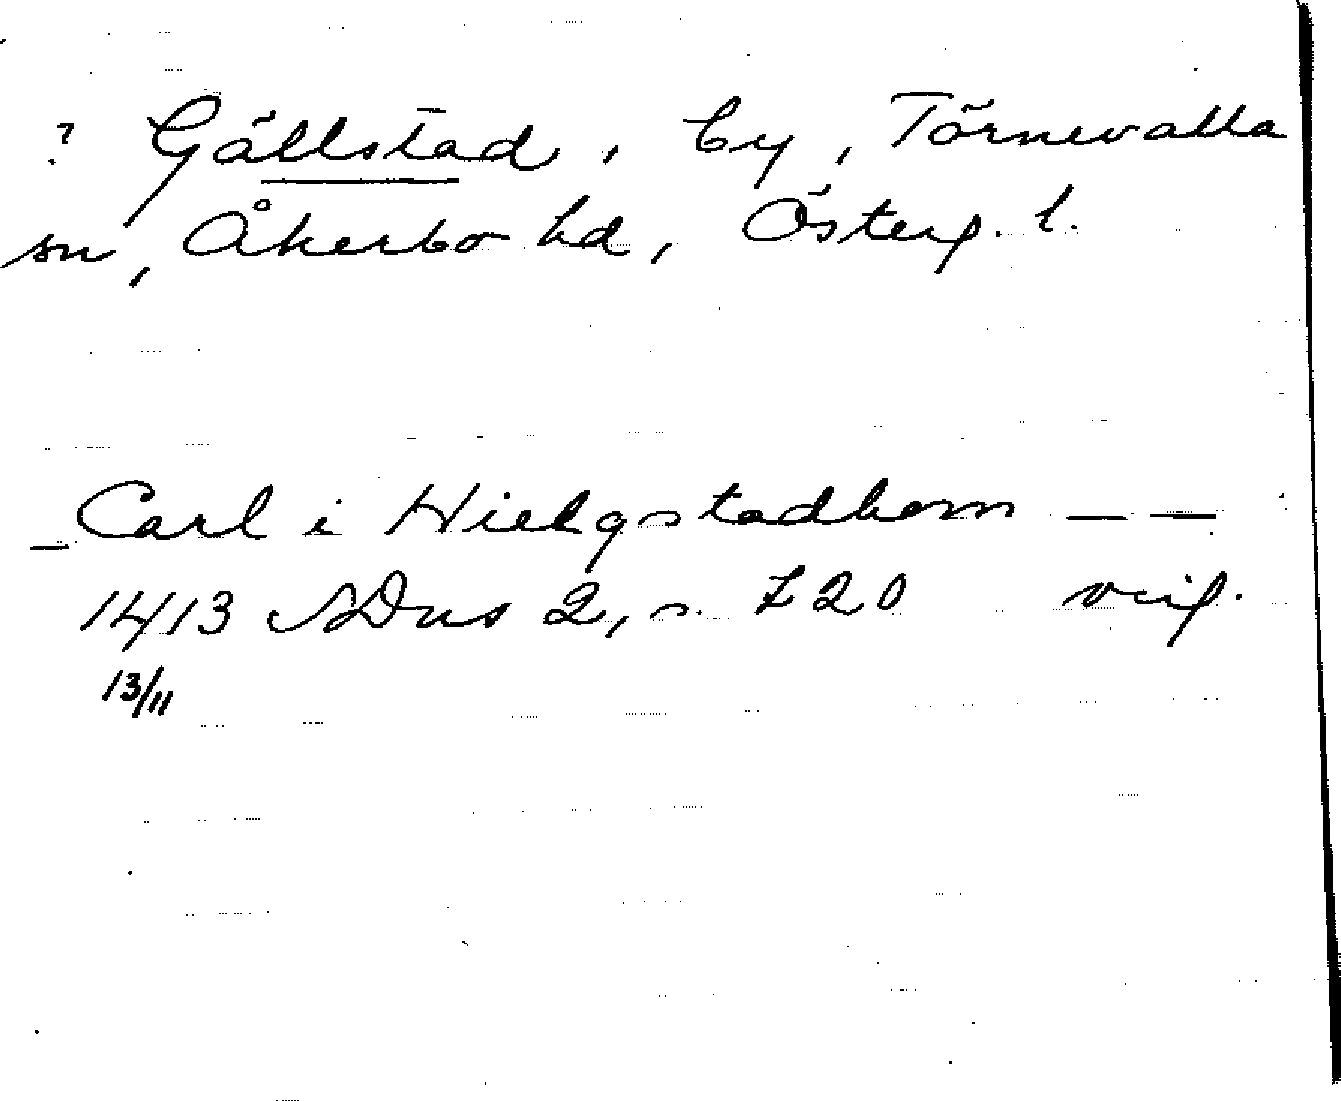 ? Gällstad, by, Törnevalla
sn, Åkerbo hd, Österg. l.
_ Carl i Hielgstadhem — —
1413 SDns 2, s. 720 vig.
13/11